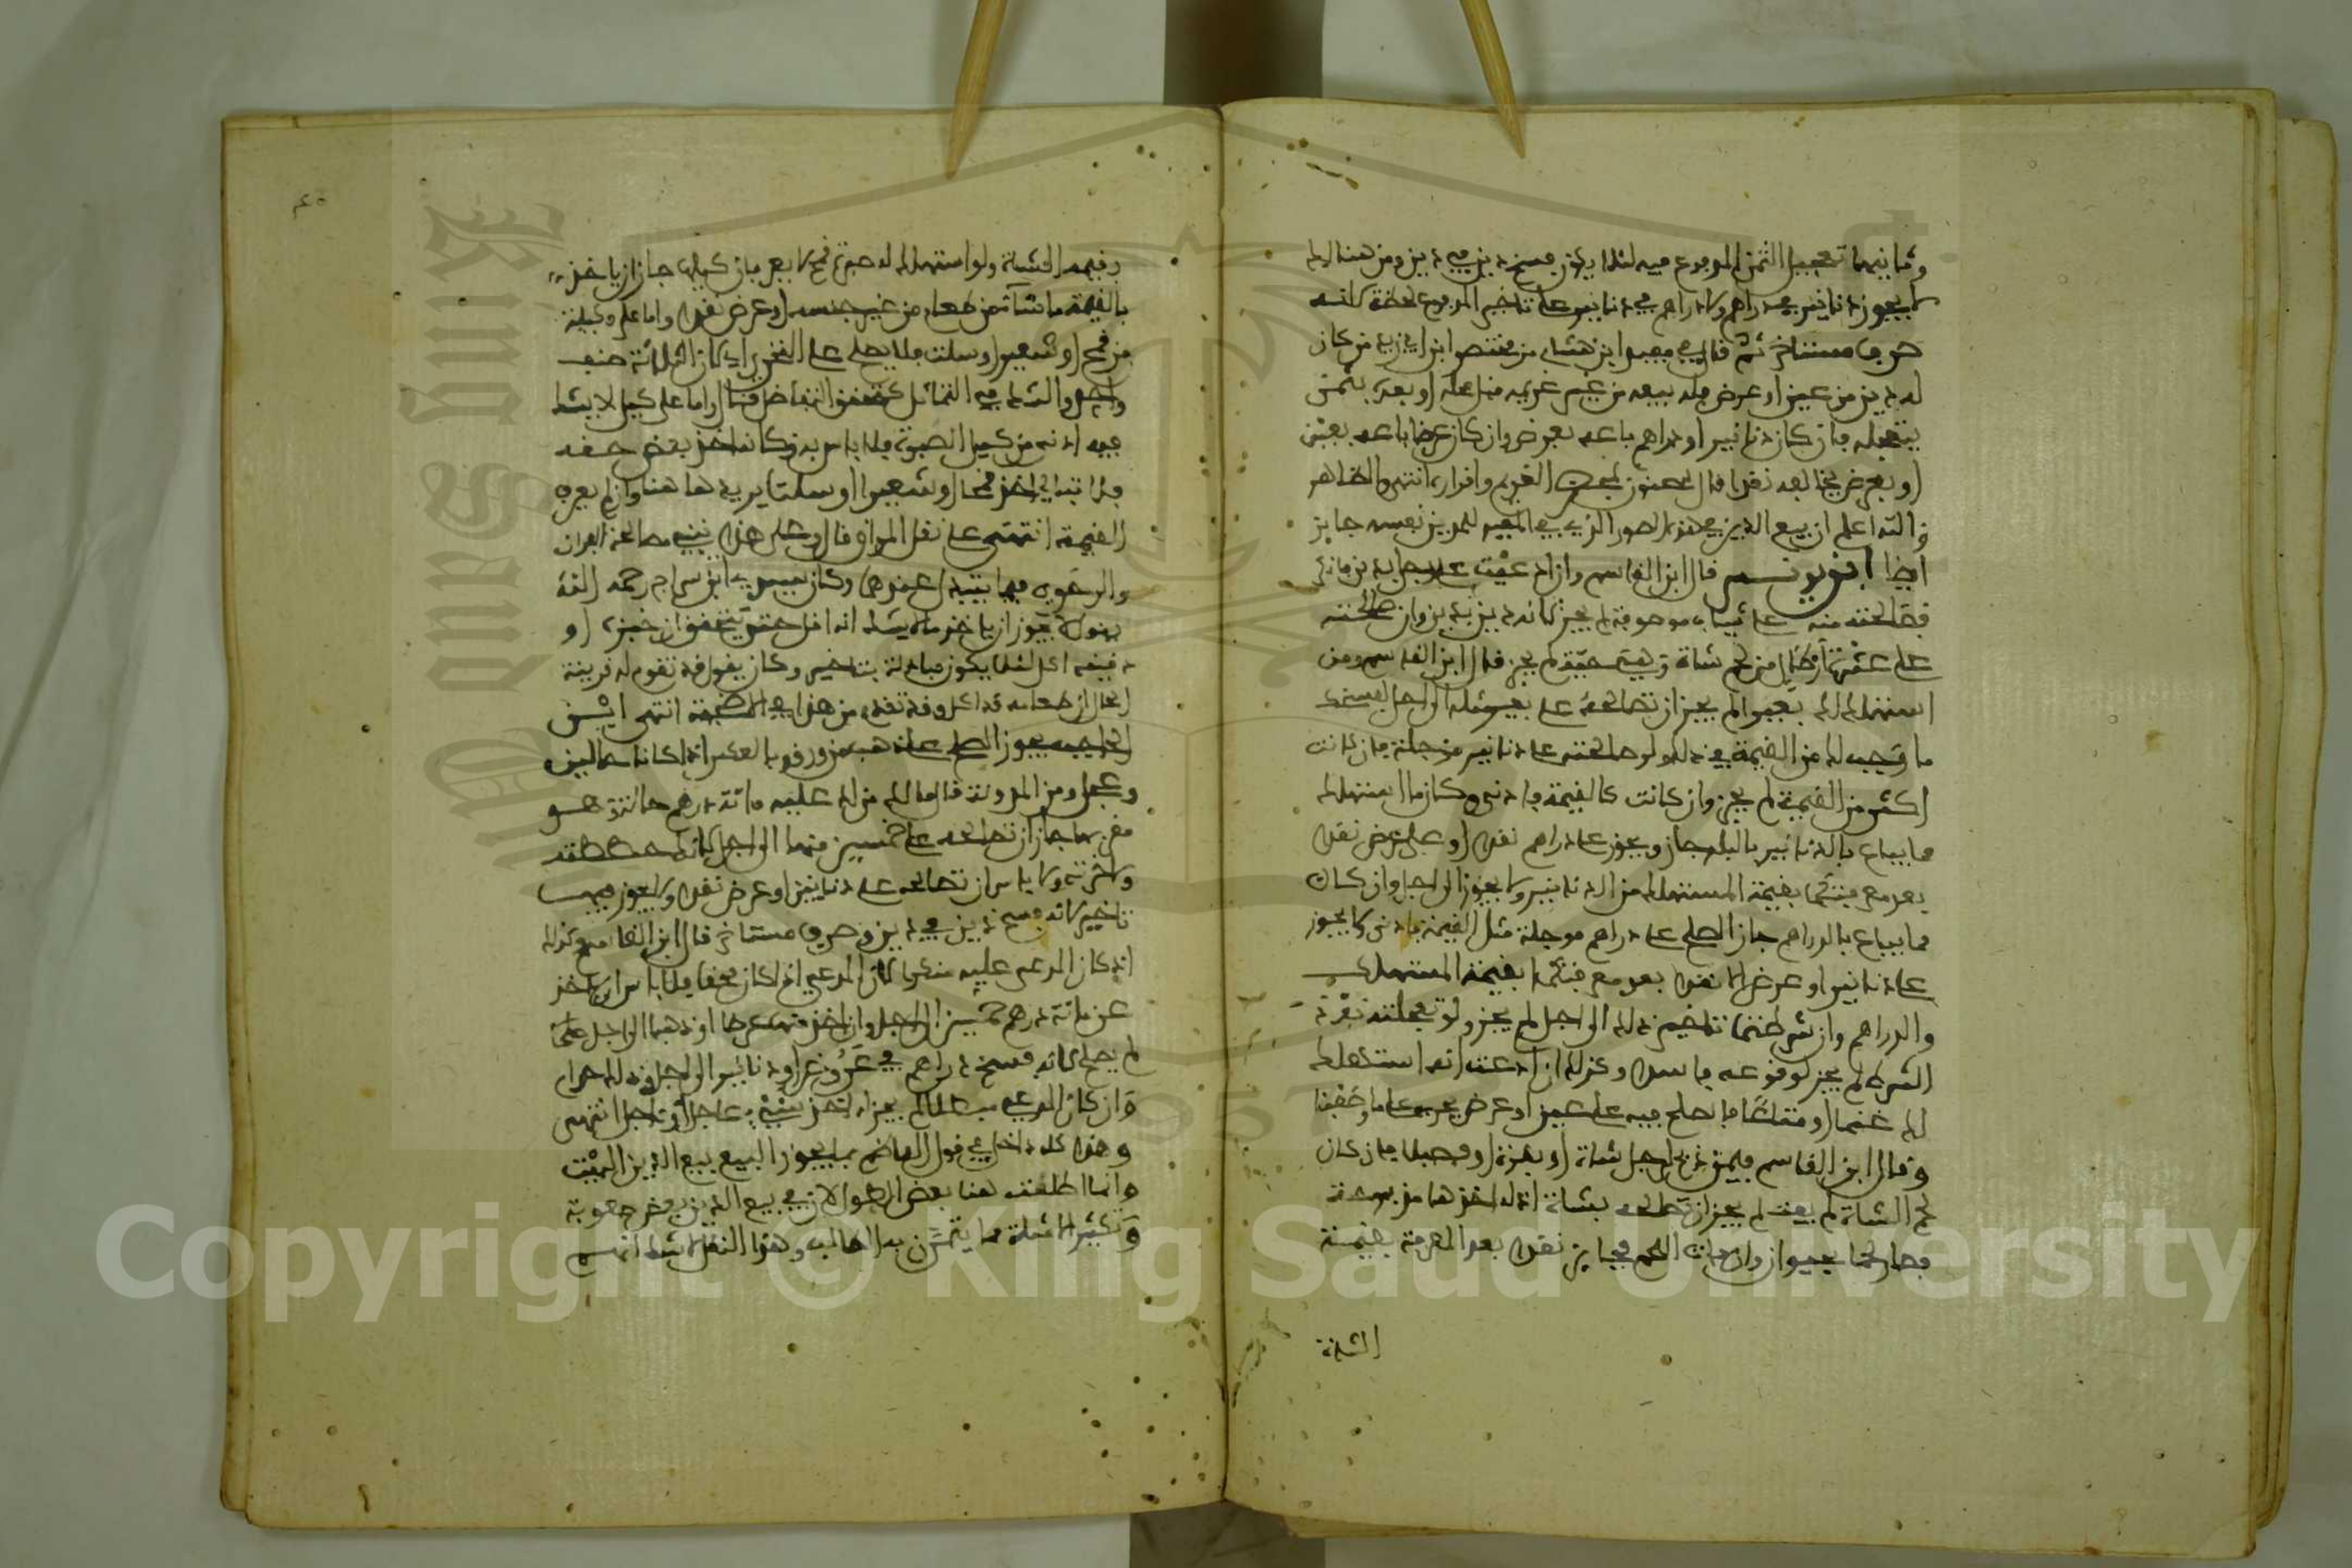 وثانيهما تعجيل الثمن المدفوع فيه ليلا يكون فسخ دين في دين ومن هنا لم
يجوز دنانير في دراهم ولا دراهم في دنانير على تاخير المدفوع لحظة لانه
صرف مستاخر ثم قال في مفيد ابن هشام من مختصر ابن ابي زيد من كان
له دين من عين او عرض فله بيعه من غير غريمه قبل محله او بعده بثمن
يتعجله فان كان دنانير او دراهم باعه بعرض وان كان عرضا باعه بعين
او بعرض يخالفه نقدا قال سحنون بمحضر الغريم واقراره انتهى والظاهر
والله اعلم ان بيع الدين في هذه الصور الذي في المفيد للمدين نفسه جايز
ايضا ابن يونس قال ابن القاسم وان ادعيت على رجل بدين
فصالحته منه على ثياب موصوفة لم يجز لانه دين بدين وان صالحته
على عشرة ارطال من لحم شاة وهي حية لم يجز قال ابن القاسم ومن
استهلك لك بعيرا لم يجز ان تصالحه على بعير مثله الى اجل لفسخك
ما وجب لك من القيمة في ذلك ولو صالحته على دنانير مؤجلة فان كانت
اكثر من القيمة لم يجز وان كانت كالقيمة فادنى وكان ما استهلك
مما يباع بالدنانير بالبلد جاز ويجوز على دراهم نقدا او على عرض نقدا
بعد معرفتكما بقيمة المستهلك من الدنانير ولا يجوز الى اجل وان كان
مما يباع بالدراهم جاز الصلح على دراهم موجلة مثل القيمة فادنى ولا يجوز
على دنانير او عرض الا نقدا بعد معرفتكما بقيمة المستهلك
والدراهم وان شرطتما تاخير ذلك الى اجل لم يجز ولو تعجلته بعد
الشرط لم يجز لوقوعه فاسدا وكذلك ان ادعيت انه استهلك
لك غنما او متاعا فاصلح فيه على عين او عرض يجري على ما وصفنا
وقال ابن القاسم فيمن ذبح لرجل شاة او بقرة او فصيلا فان كان
لحم الشاة لم يفت لم يجز ان تصالحه بشاة اذ له اخذها مذبوحة
فصار لحما بحيوان وان فات اللحم فجايز نقدا بعد المعرفة بقيمة
الشاة
وقيمة الشاة ولو استهلك له صبرة قمح لا يعرفان كيلها جاز ان ياخذ
بالقيمة ما شاء من طعام من غير جنسه او عرض نقدا واما على مكيلة
من قمح او شعير او سلت فلا يصلح على التحري اذ كان الثلاثة صنف
واحد والشك في التماثل كتحقق التفاضل قال واما على كيل لا يشك
فيه ادنى من كيل الصبرة فلا باس به وكانه اخذ بعض حقه
فلا تبالي اخذ قمحا او شعيرا او سلتا يريد هاهنا وان لم يعرف
القيمة انتهى على نقل المواق قال وعلى هذا تبنى مصالحة الفران
والرحوي فيما يتلف عندهما وكان سيدي ابن سراج رحمه الله
يقول لا يجوز ان ياخذ ما لا يشك انه اقل حتى يتحقق ان خبزه او
دقيقه اكل ليلا يكون مبادلة بتاخير وكان يقول قد تقوم له قرينة
الحال ان طعامه قد اكل وقد تقدم من هذا في المطبخة انتهى ابن
الحاجب يجوز الصلح على ذهب من ورق وبالعكس اذا كانا حالين
وعجل ومن المدونة قال مالك من لك عليه مائة درهم حالة وهو
مقر بها جاز ان تصالحه على خمسين منها الى اجل لانك حططته
واخرته ولا باس ان تصالحه على دنانير او عرض نقدا ولا يجوز فيهما
تاخير لانه فسخ دين في دين وصرف مستاخر قال ابن القاسم وكذلك
ان كان المدعى عليه منكرا لان المدعي ان كان محقا فلا باس ان ياخذ
عن مائة درهم خمسين الى اجل وان اخذ منه عرضا او ذهبا الى اجل
لم يصلح لانه فسخ دراهم في عروض او دنانير الى اجل وذلك حرام
وان كان المدعي مبطلا لم يجز اخذ شيء عاجل او اجل انتهى
وهذا كله داخل في قول الناظم مما يجوز البيع بيع الدين البيت
وانما اطلقت هنا بعض الطول لان في بيع الدين بعض صعوبة
وتكثير الامثلة مما يتمرن به الطالب وهذا النقل